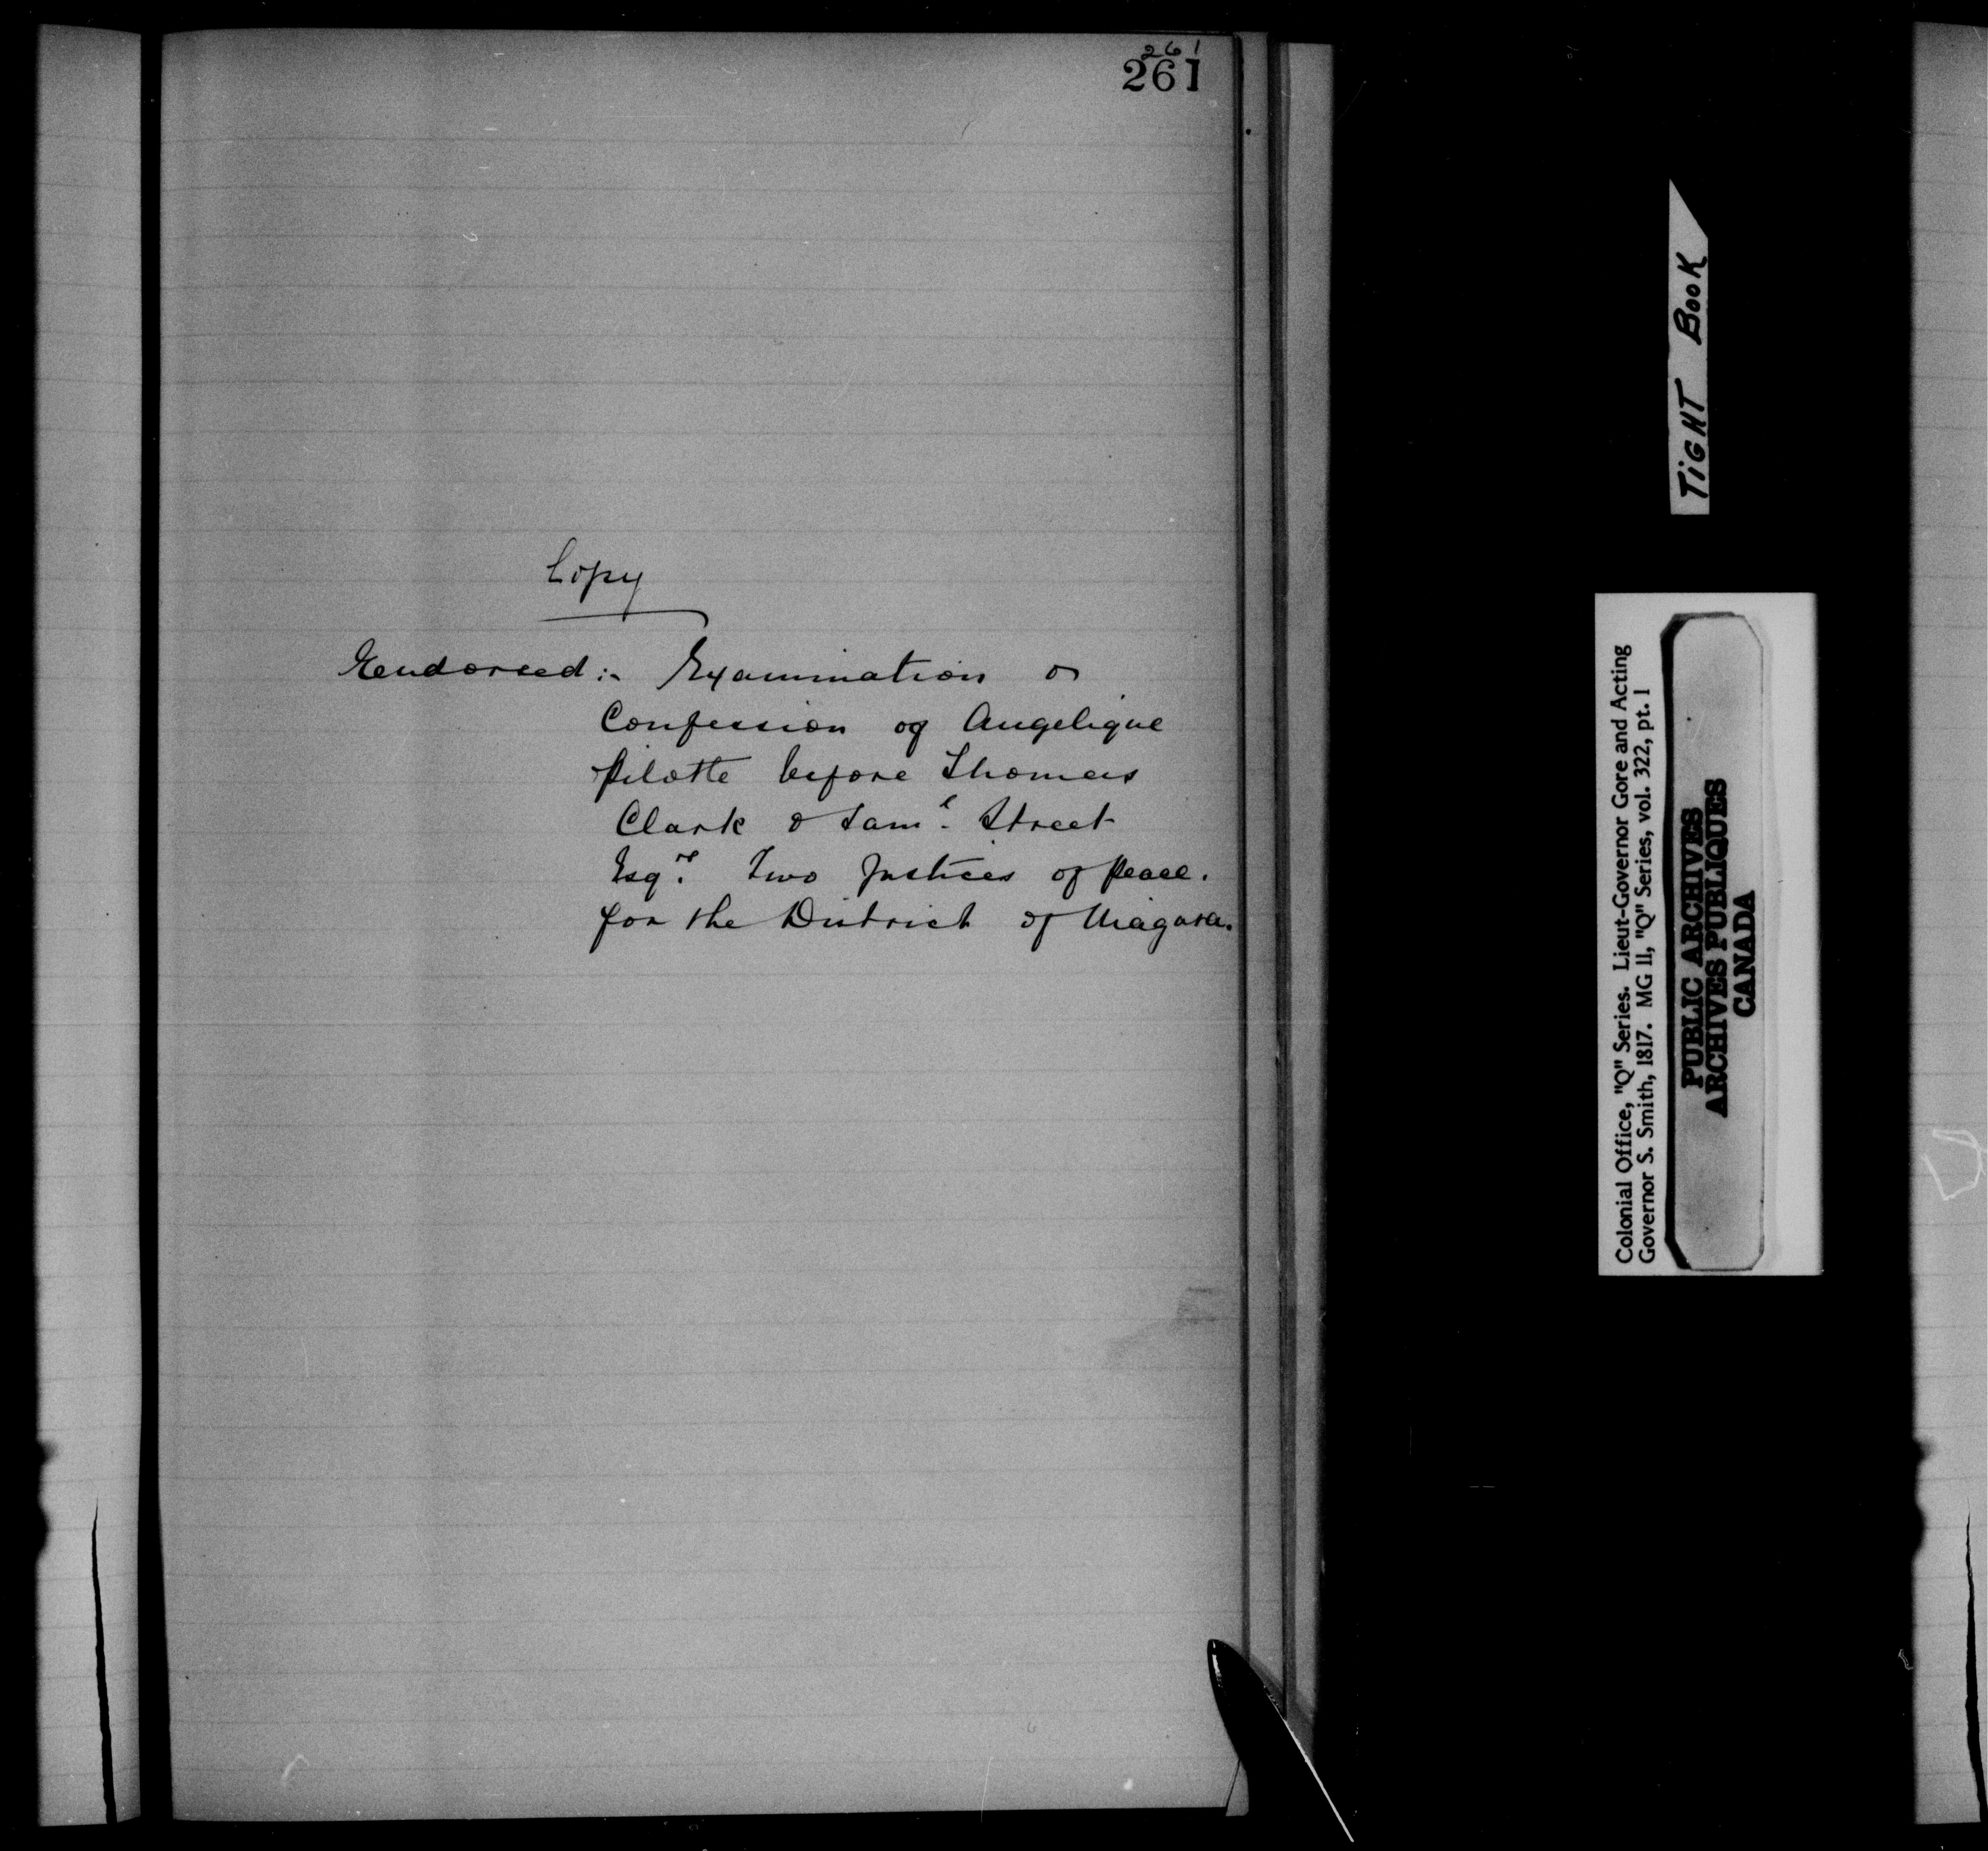 261
261
Copy
Eendorsed:- Examination &
Confession of Angelique
Pilotte before Thomas
Clark & Saml. Street
Esqrs. Two Justices of Peace.
for the District of Niagara.
TiGHT BooK
Colonial Office, "Q" Series. Lieut-Governor Gore and Acting
Governor S. Smith, 1817. MG 11, "Q" Series, vol. 322, pt. 1
PUBLIC ARCHIVES
ARCHIVES PUBLIQUES
CANADA